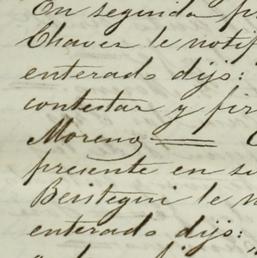 En seguida p
Chavez le notif
enterado dijo:
contestar y fir
Moreno
presente en se
Beistegui le n
enterado dijo: